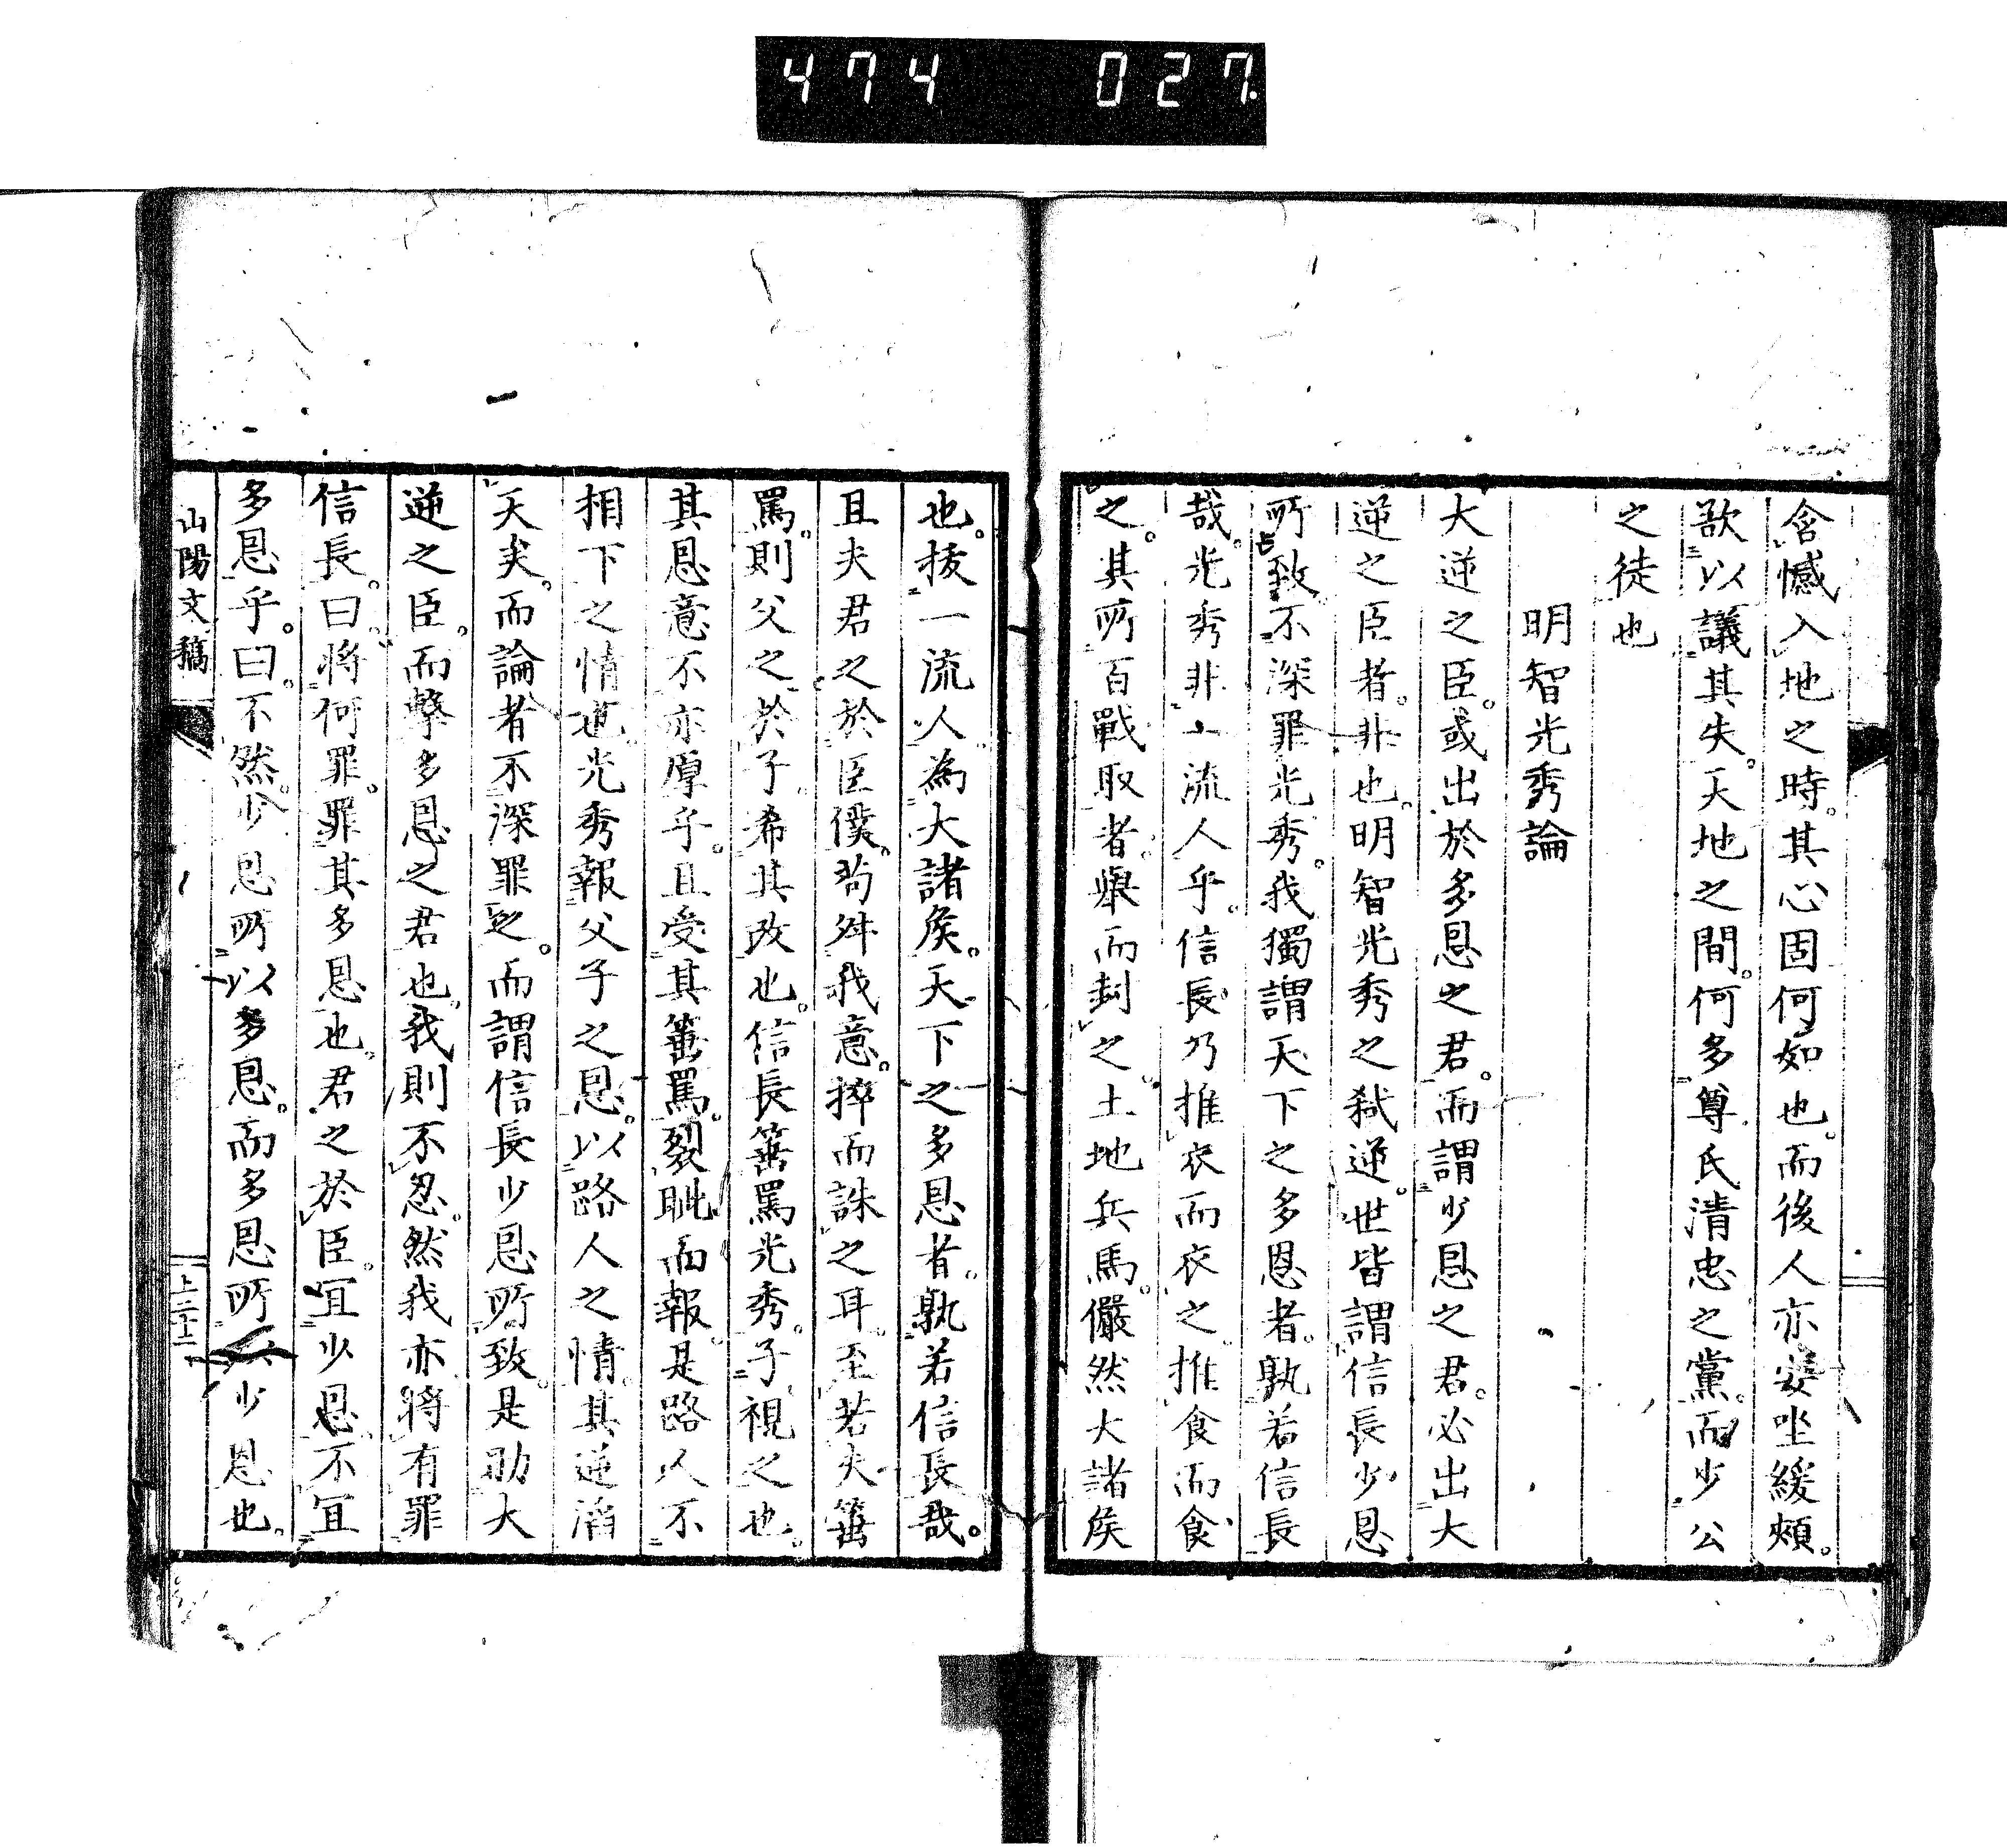 474 027.
含憾入地之時。其心固何如也。而後人亦安坐緩頰。
欲以議其失。天地之間。何多尊氏清忠之黨。而少公
之徒也
明智光秀論
大逆之臣。或出於多恩之君。而謂少恩之君。必出大
逆之臣者。非也。明智光秀之弑逆。世皆謂信長少恩
所致。不深罪光秀。我獨謂天下之多恩者。孰若信長
哉。光秀非一流人乎。信長乃推衣而衣之。推食而食
之。其所百戰取者。舉而封之。土地兵馬。儼然大諸矦
也。拔一流人為大諸矦。天下之多恩者。孰若信長哉。
且夫君之於臣僕。苟舛我意。捽而誅之耳。至若夫箠
罵。則父之於子。希其改也。信長箠罵光秀。子視之也。
其恩意不亦厚乎。且受其箠罵。裂眦而報。是路人不
相下之情也。光秀報父子之恩。以路人之情。其逆滔
天矣。而論者不深罪之。而謂信長少恩所致。是助大
逆之臣。而擊多恩之君也。我則不忍。然我亦將有罪
信長。曰將何罪。罪其多恩也。君之於臣。宜少恩不宜
多恩乎。曰。不然。少恩所以多恩。而多恩所以少恩也。
山陽文稿
上二十二